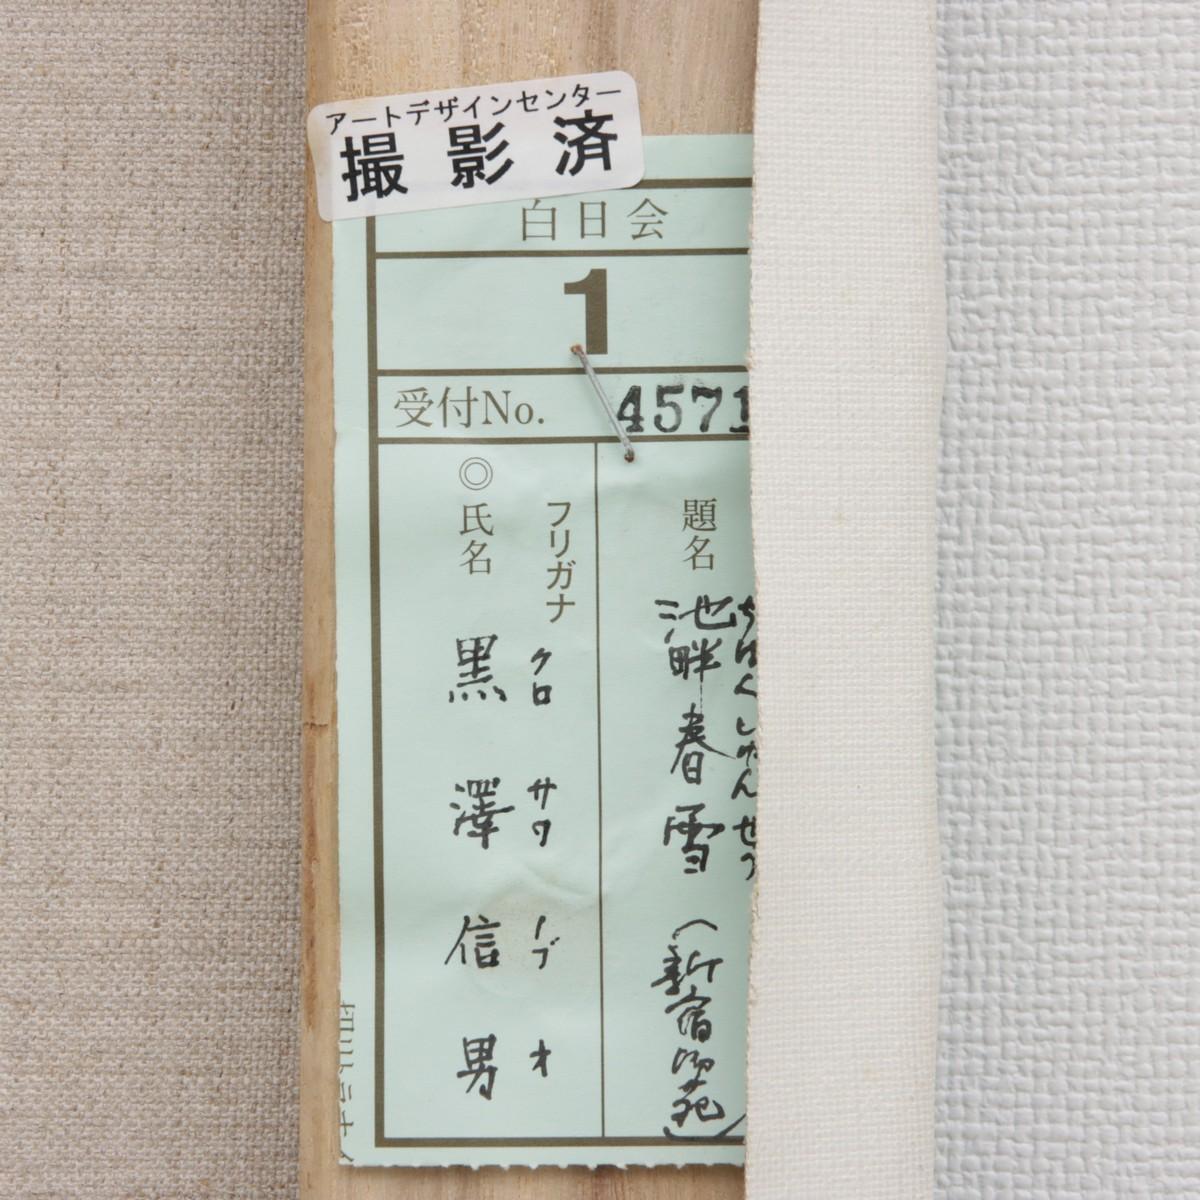 アートデザインセンター
撮影済
白日会
1
受付No. 4571
題名
池畔春雪(新宿御苑)
ちはんしゅんせつ
フリガナ
クロサワノブオ
◎氏名
黒澤信男